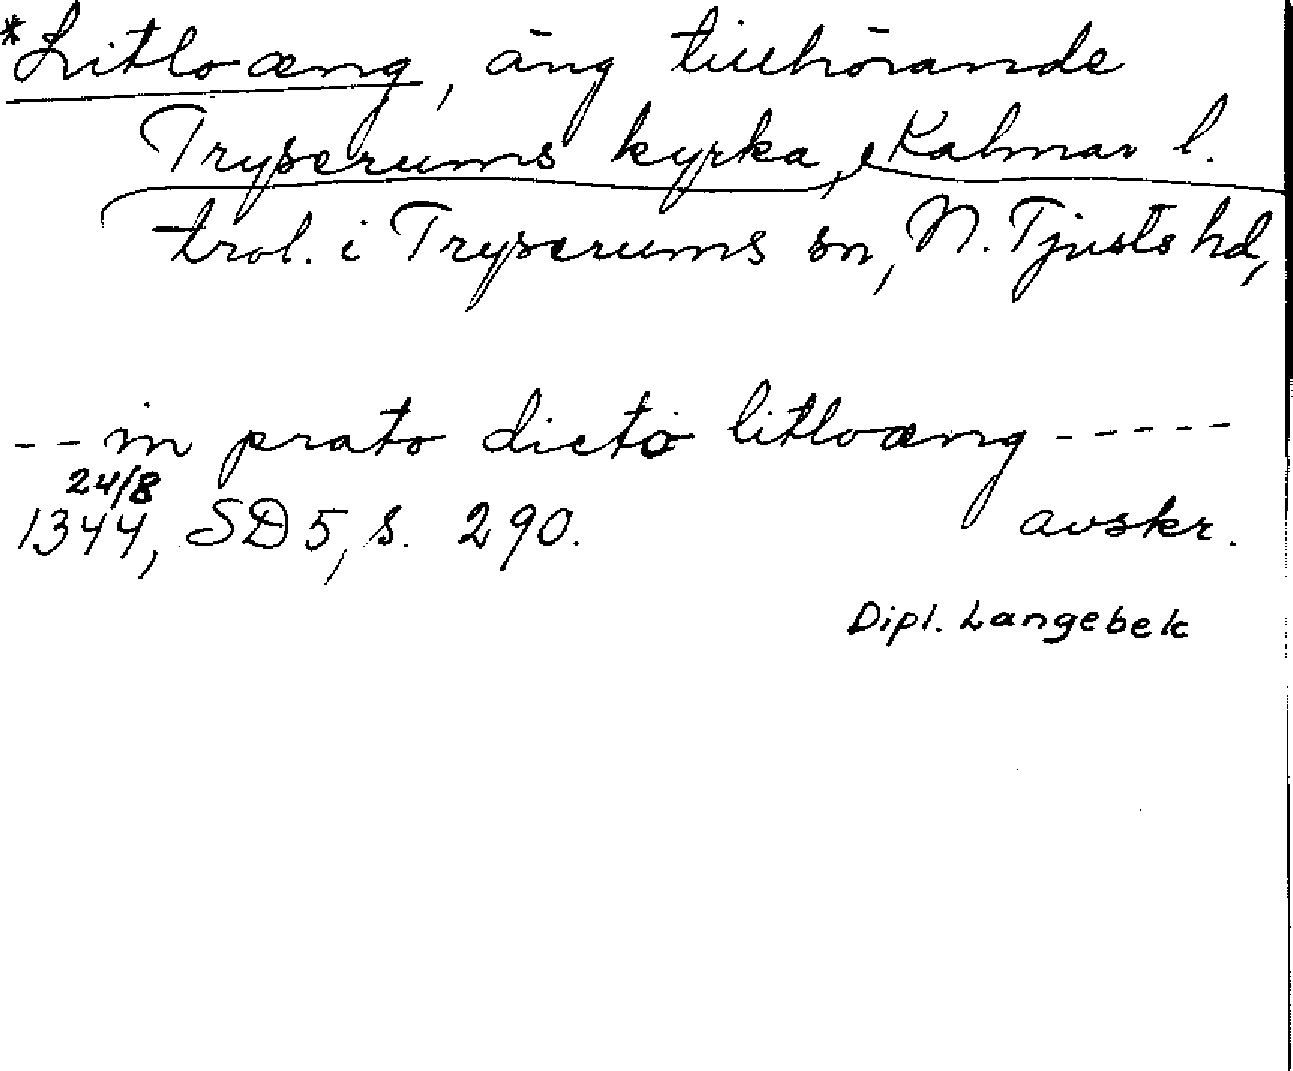 *Litloæng, äng tillhörande
Tryserums kyrka, Kalmar l.
trol. i Tryserums sn, N. Tjusts hd,
-- in prato dicto litloæng -----
24/8
1344, SD 5, s. 290. avskr.
Dipl. Langebek